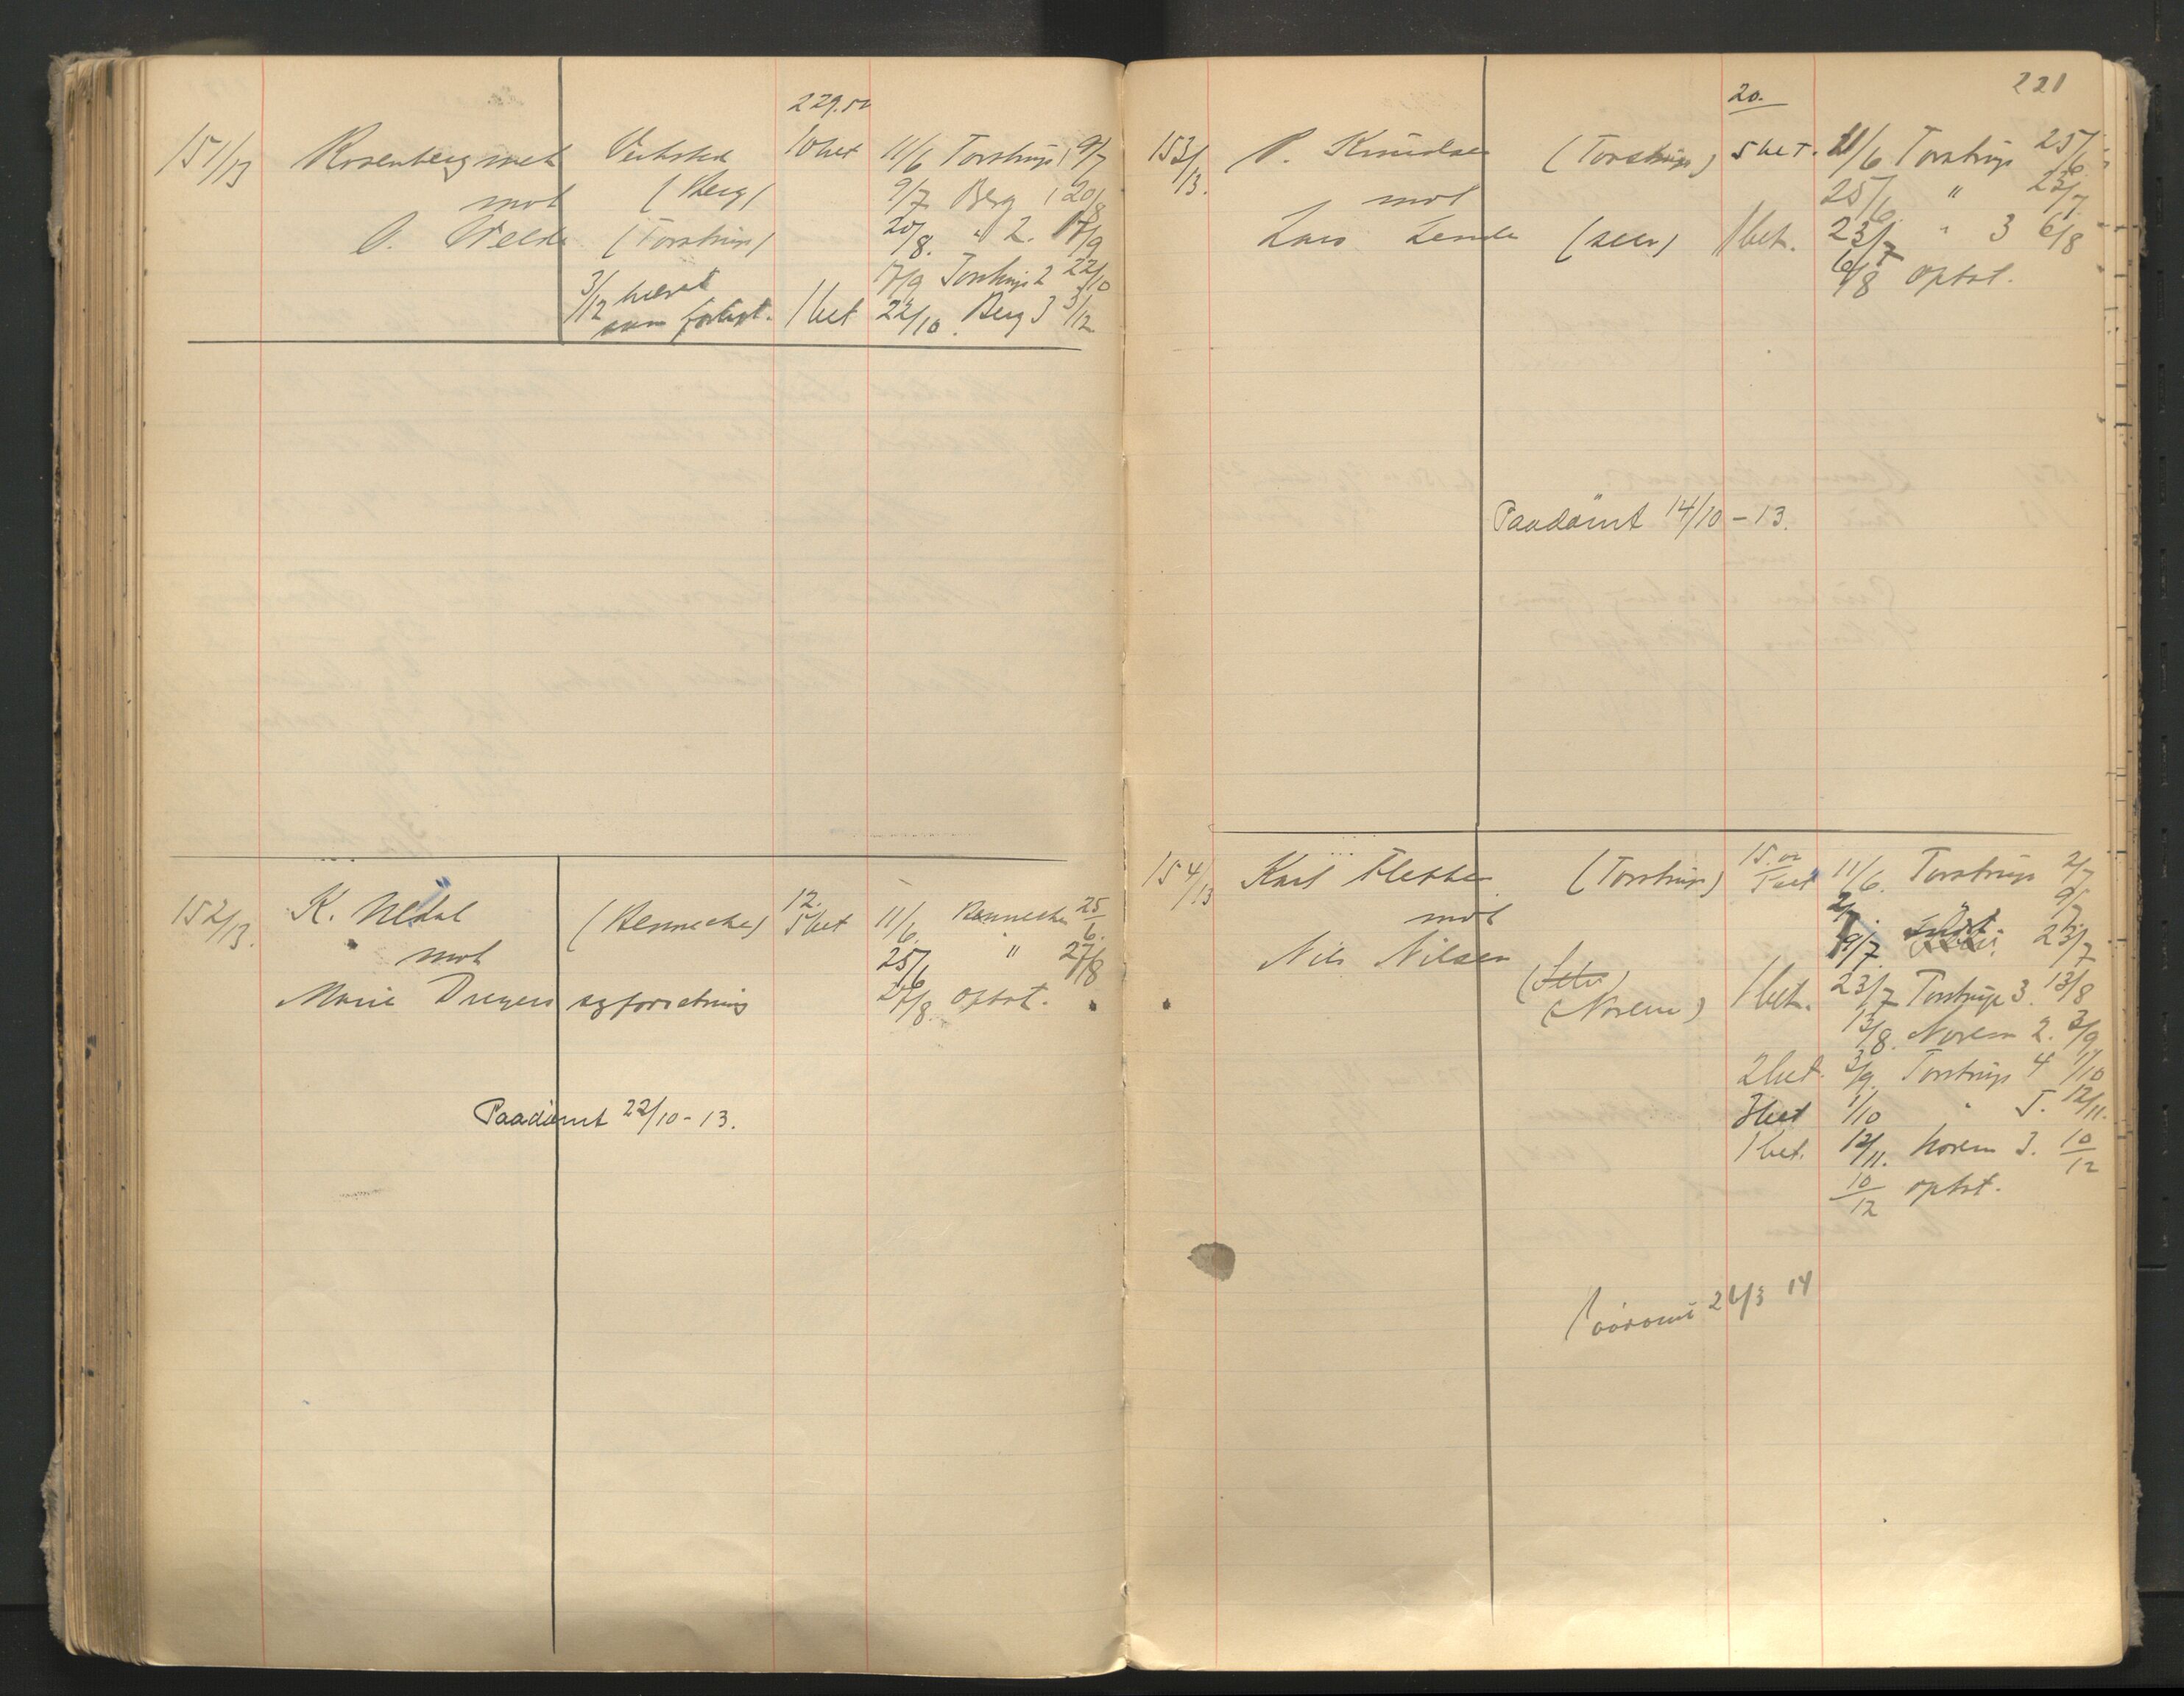 229.50
151/13 Rosenberg mek Verksted 10 bet 11/6 Torstrup 1 9/7
mot (Berg) 9/7 Berg 1 20/8
O. (Torstrup) 20/8. " 2. 17/9
17/9 Torstrup 2 22/10
3/12 hævet
som forligt. 1 bet 22/10. Berg 3 3/12
12.
152/13. K. Nedal (Bennecke) 5 bet 11/6 Bennecke 25/6.
mot 25/6 " 27/8
Marie Dreyers sgforretning 27/8. optat.
Paadømt 22/10-13.
221
20.
153/13. P. Knudsen (Torstrup) 5 bet. 11/6 Torstrup 25/6
mot 25/6. " 23/7
Lars 1 bet. 23/7 " 3 6/8
6/8 optat.
Paadømt 14/10-13.
154/13 Karl (Torstrup) 15.00 5 bet 11/6. Torstrup 2/7
mot 2/7. 9/7
9/7. 23/7
Nils Nilsen
(Norem) 1 bet. 23/7 Torstrup 3. 13/8
13/8. Norem 2. 3/9
2 bet. 3/9. Torstrup 4 1/10
3 bet 1/10 " 5. 12/11.
1 bet. 12/11. Norem 3. 10/12
10/12 optat.
Paadømt 26/3 14